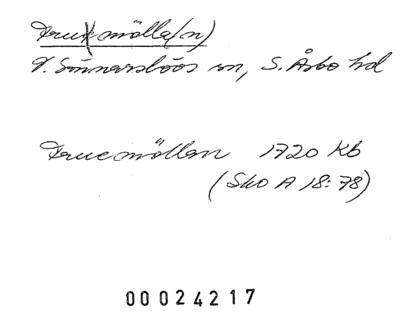 Truxmölla(n)
V. Sönnarslövs sn, S. Åsbo hd
Trucmöllan 1720 Kb
(Sko A 18:78)
00024217